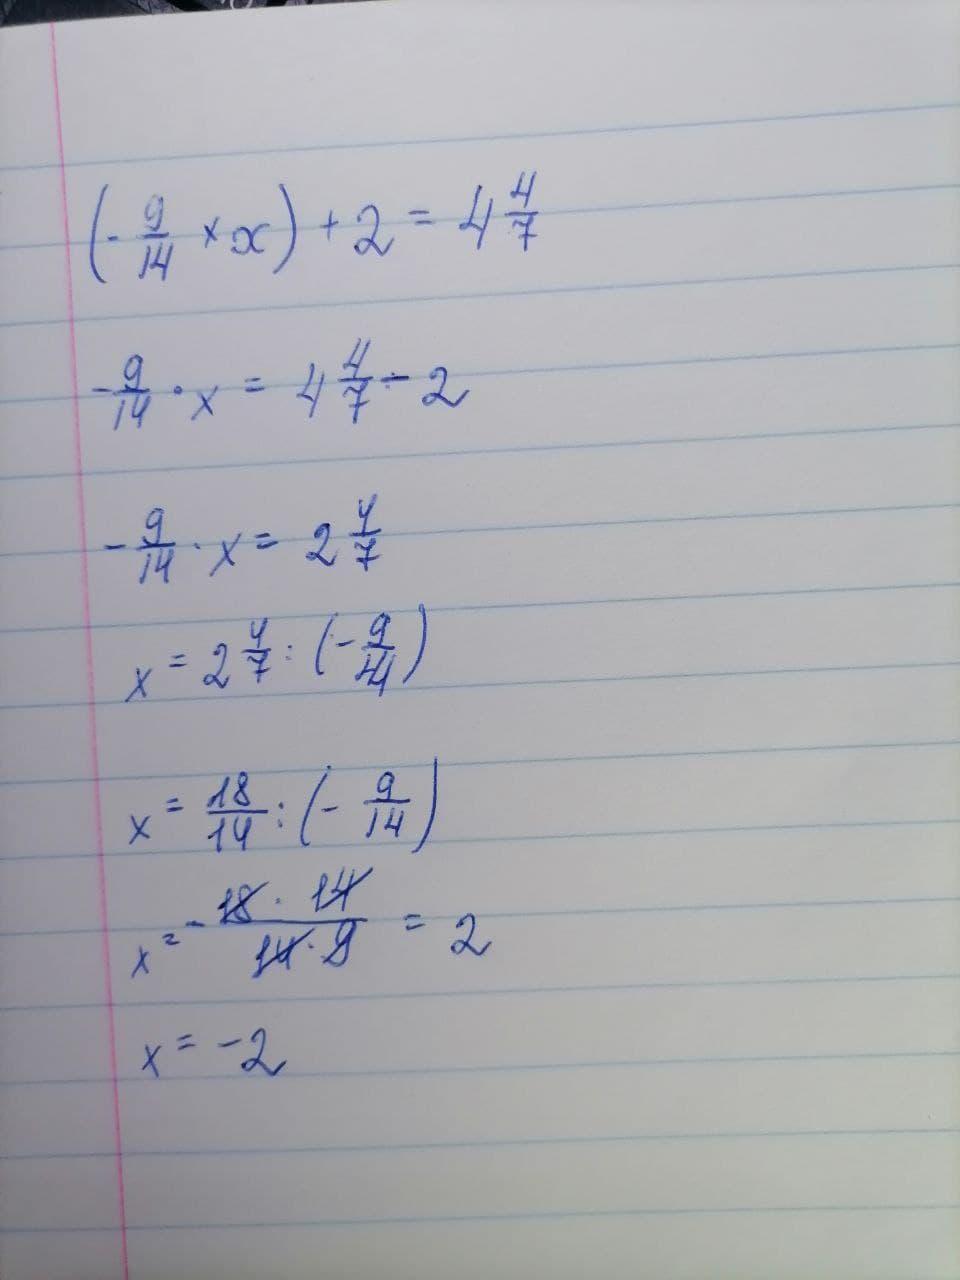 (- 9/14 × x) + 2 = 4 4/7
- 9/14 · x = 4 4/7 - 2
- 9/14 · x = 2 4/7
x = 2 4/7 : (- 9/14)
x = 18/14 : (- 9/14)
x = - 18 · 14 / 14 · 9 = 2
x = -2